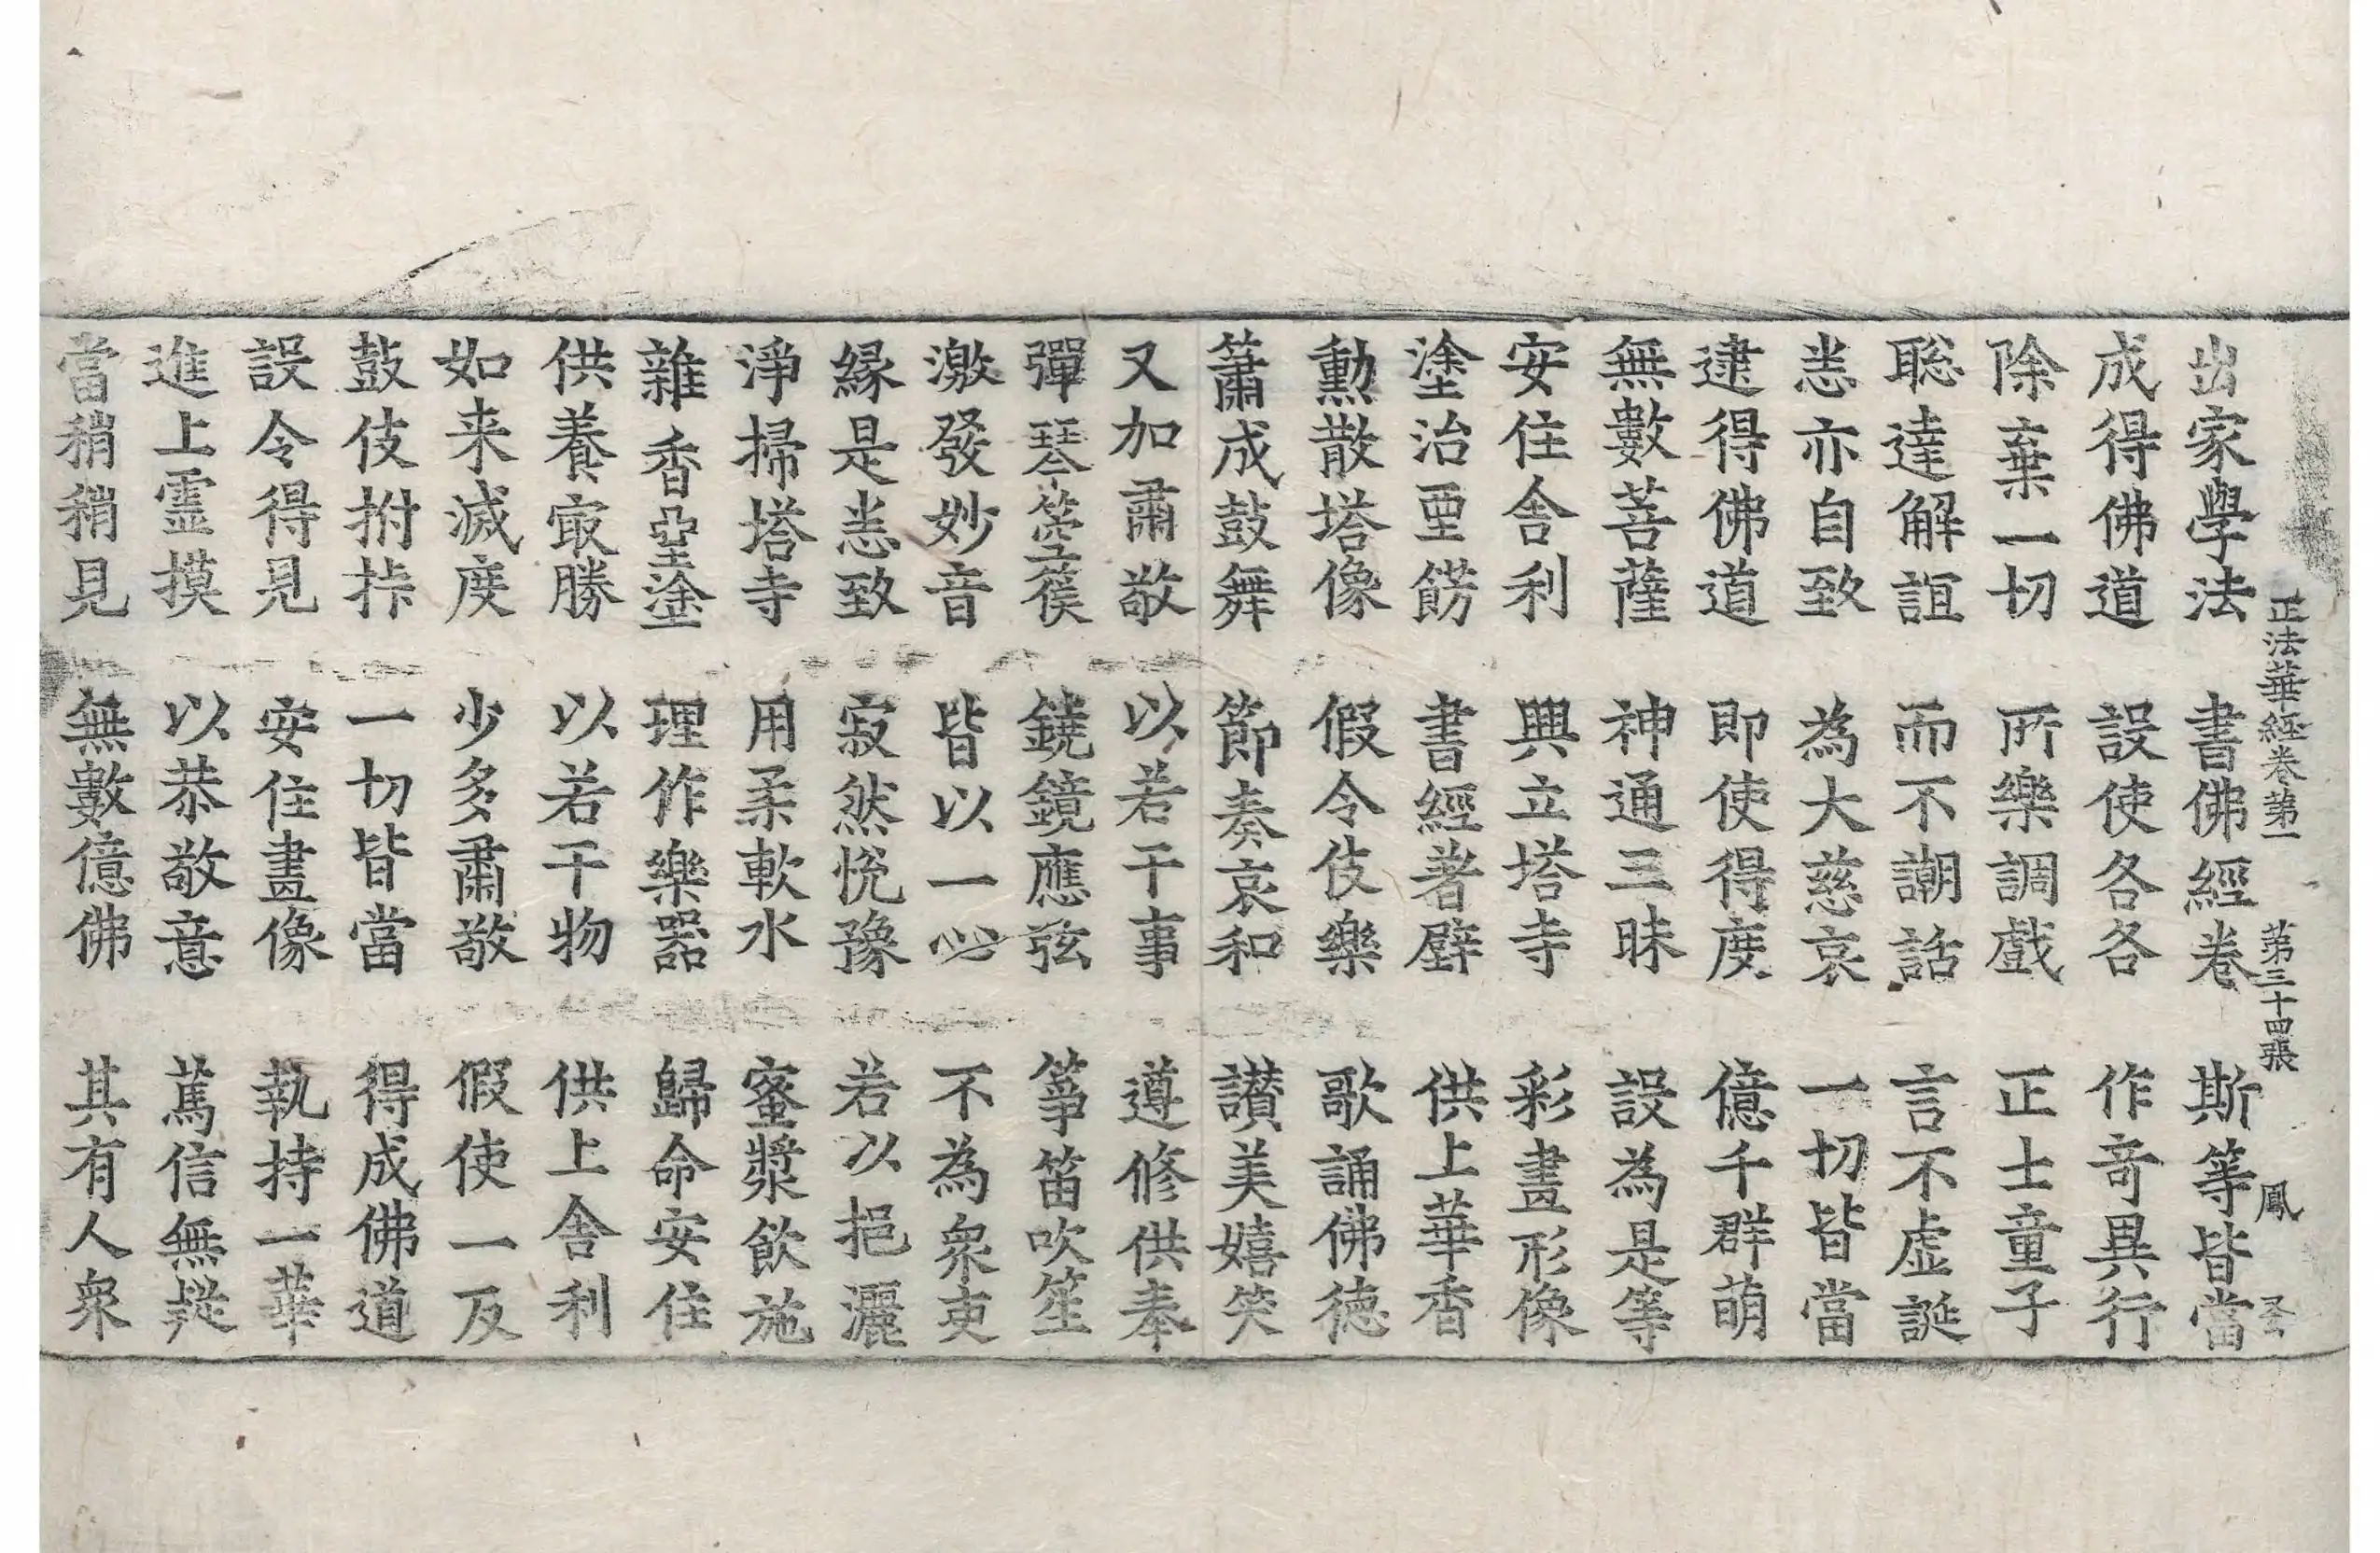 正法華經卷第一 第三十四張 鳳
出家學法 書佛經卷 斯等皆當
成得佛道 設使各各 作奇異行
除棄一切 所樂調戲 正士童子
聡達解誼 而不謿話 言不虚誕
恙亦自致 為大慈哀 一切皆當
逮得佛道 即使得度 億千群萌
無數菩薩 神通三昧 設為是等
安住舎利 興立塔寺 彩畫形像
塗治堊餝 書經著壁 供上華香
勳散塔像 假令伎樂 歌誦佛徳
簫成鼓舞 節奏哀和 讃美嬉笑
又加肅敬 以若干事 遵修供奉
彈琴箜篌 鐃鏡應弦 筝笛吹笙
激發妙音 皆以一心 不為衆吏
縁是恙致 寂然悅豫 若以挹灑
淨掃塔寺 用柔軟水 蜜漿飲施
雜香堊塗 理作樂器 歸命安住
供養㝡勝 以若干物 供上舎利
如来滅度 少多肅敬 假使一反
鼓伎拊拤 一切皆當 得成佛道
設令得見 安住畫像 執持一華
進上霊摸 以恭敬意 篤信無疑
當稍稍見 無數億佛 其有人衆